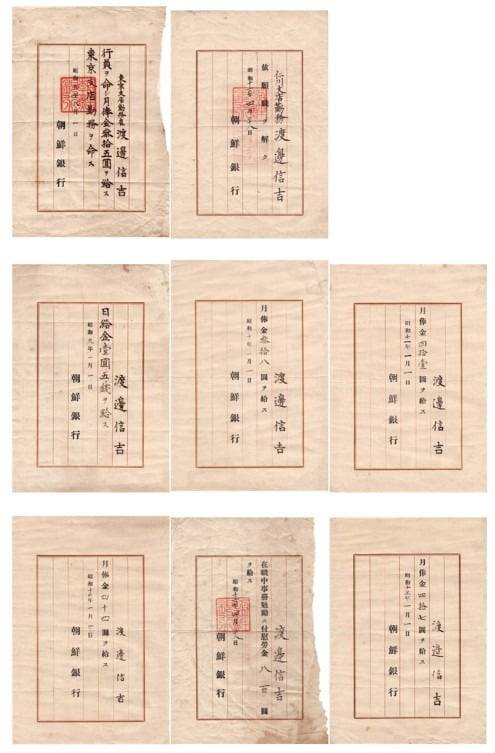 東京支店勤務雇
渡邊信吉
行員ヲ命シ月俸金参拾五圓ヲ給ス
東京支店勤務ヲ命ス
朝鮮銀行
仁川支店勤務
渡邊信吉
依願職ヲ解ク
朝鮮銀行
渡邊信吉
日給金壹圓五銭ヲ給ス
昭和九年一月一日
朝鮮銀行
渡邊信吉
月俸金参拾八圓ヲ給ス
昭和十年一月一日
朝鮮銀行
渡邊信吉
月俸金四拾壹圓ヲ給ス
昭和十一年一月一日
朝鮮銀行
渡邊信吉
月俸金四十四圓ヲ給ス
昭和十二年一月一日
朝鮮銀行
渡邊信吉
在職中事務勉勵ニ付慰勞金八百圓
ヲ給ス
朝鮮銀行
渡邊信吉
月俸金四拾七圓ヲ給ス
昭和十三年一月一日
朝鮮銀行